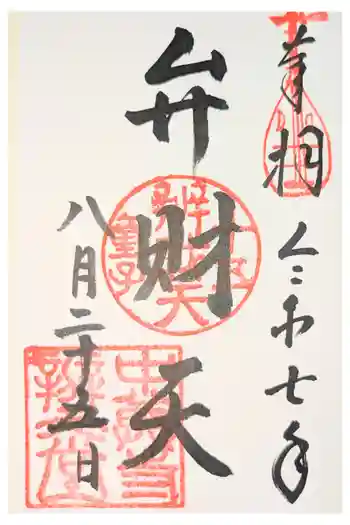 奉拝
令和七年
弁財天
八月二十五日